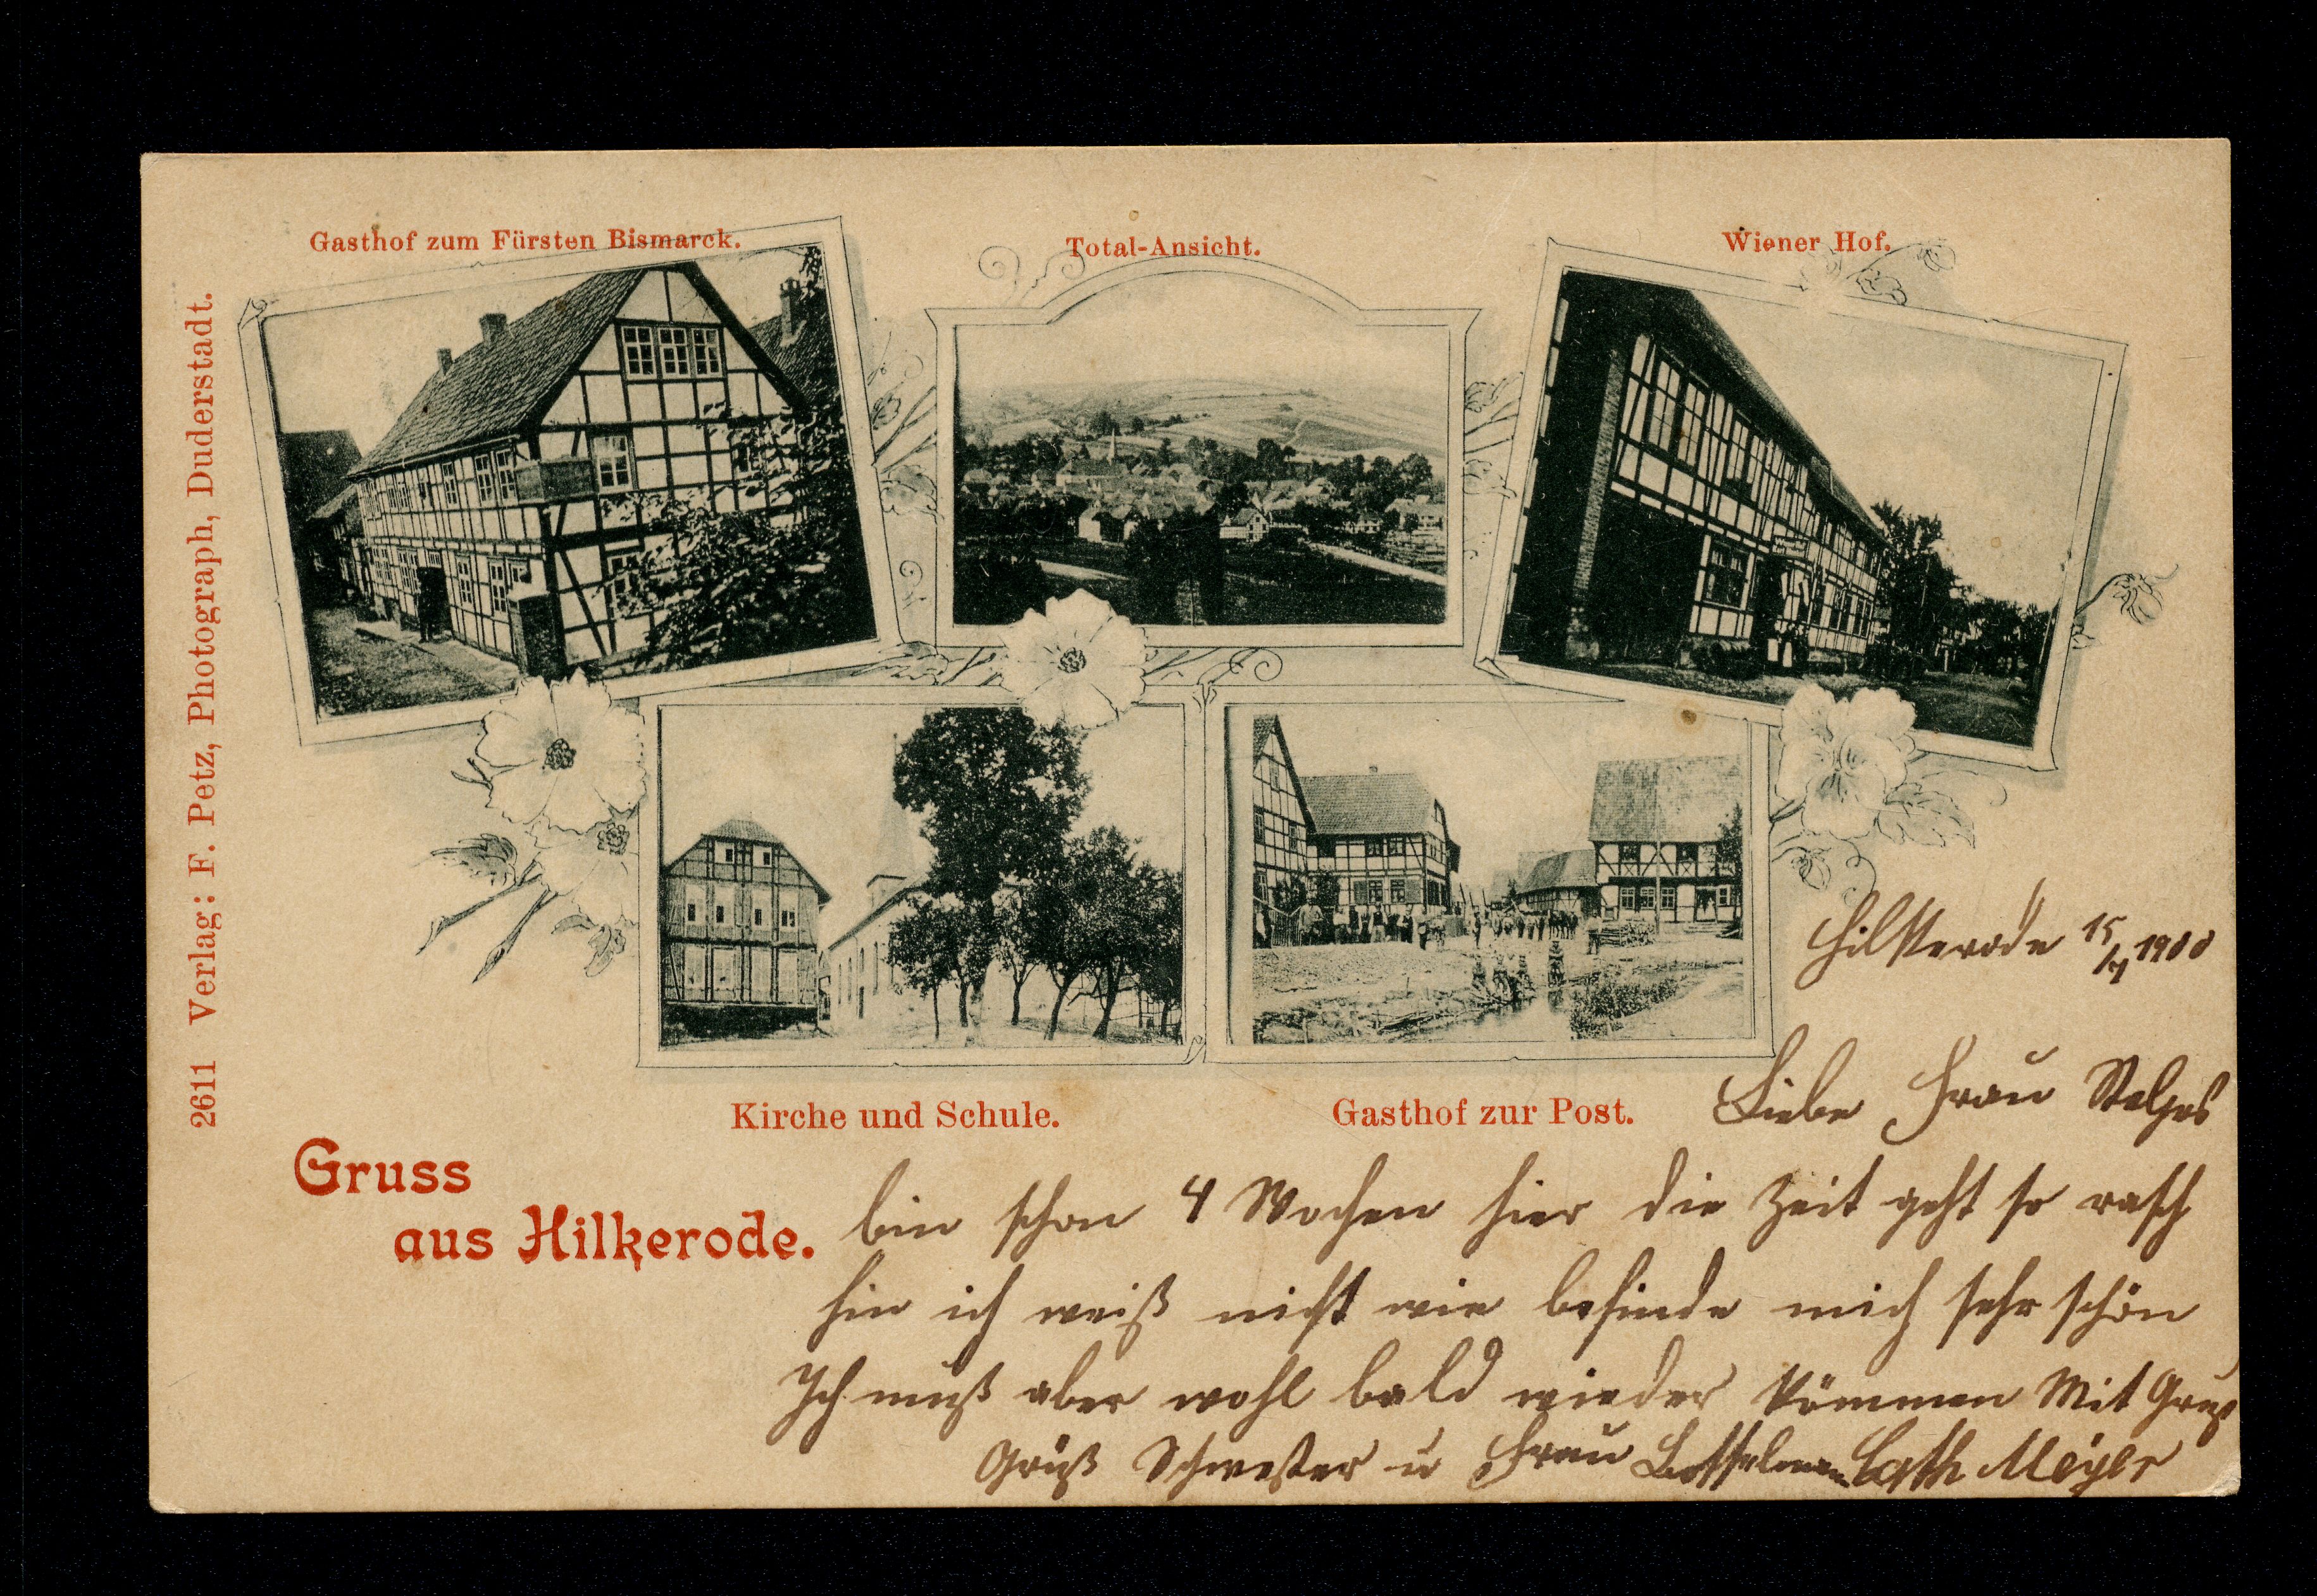 Gasthof zum Fürsten Bismarck.
Total-Ansicht.
Wiener Hof.
2611 Verlag: F. Petz, Photograph, Duderstadt.
Kirche und Schule.
Gasthof zur Post.
Gruss
aus Hilkerode.
Hilkerode 15/7 1900
Liebe Frau
bin schon 4 Wochen hier die Zeit geht so rasch
hin ich weiß nicht wie befinde mich sehr schön
Ich muß aber wohl bald wieder kommen Mit Gruß
Gruß Schwester u Frau Cath Meyer